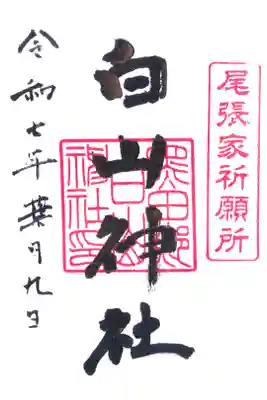 尾張家祈願所
白山神社
令和七年葉月九日